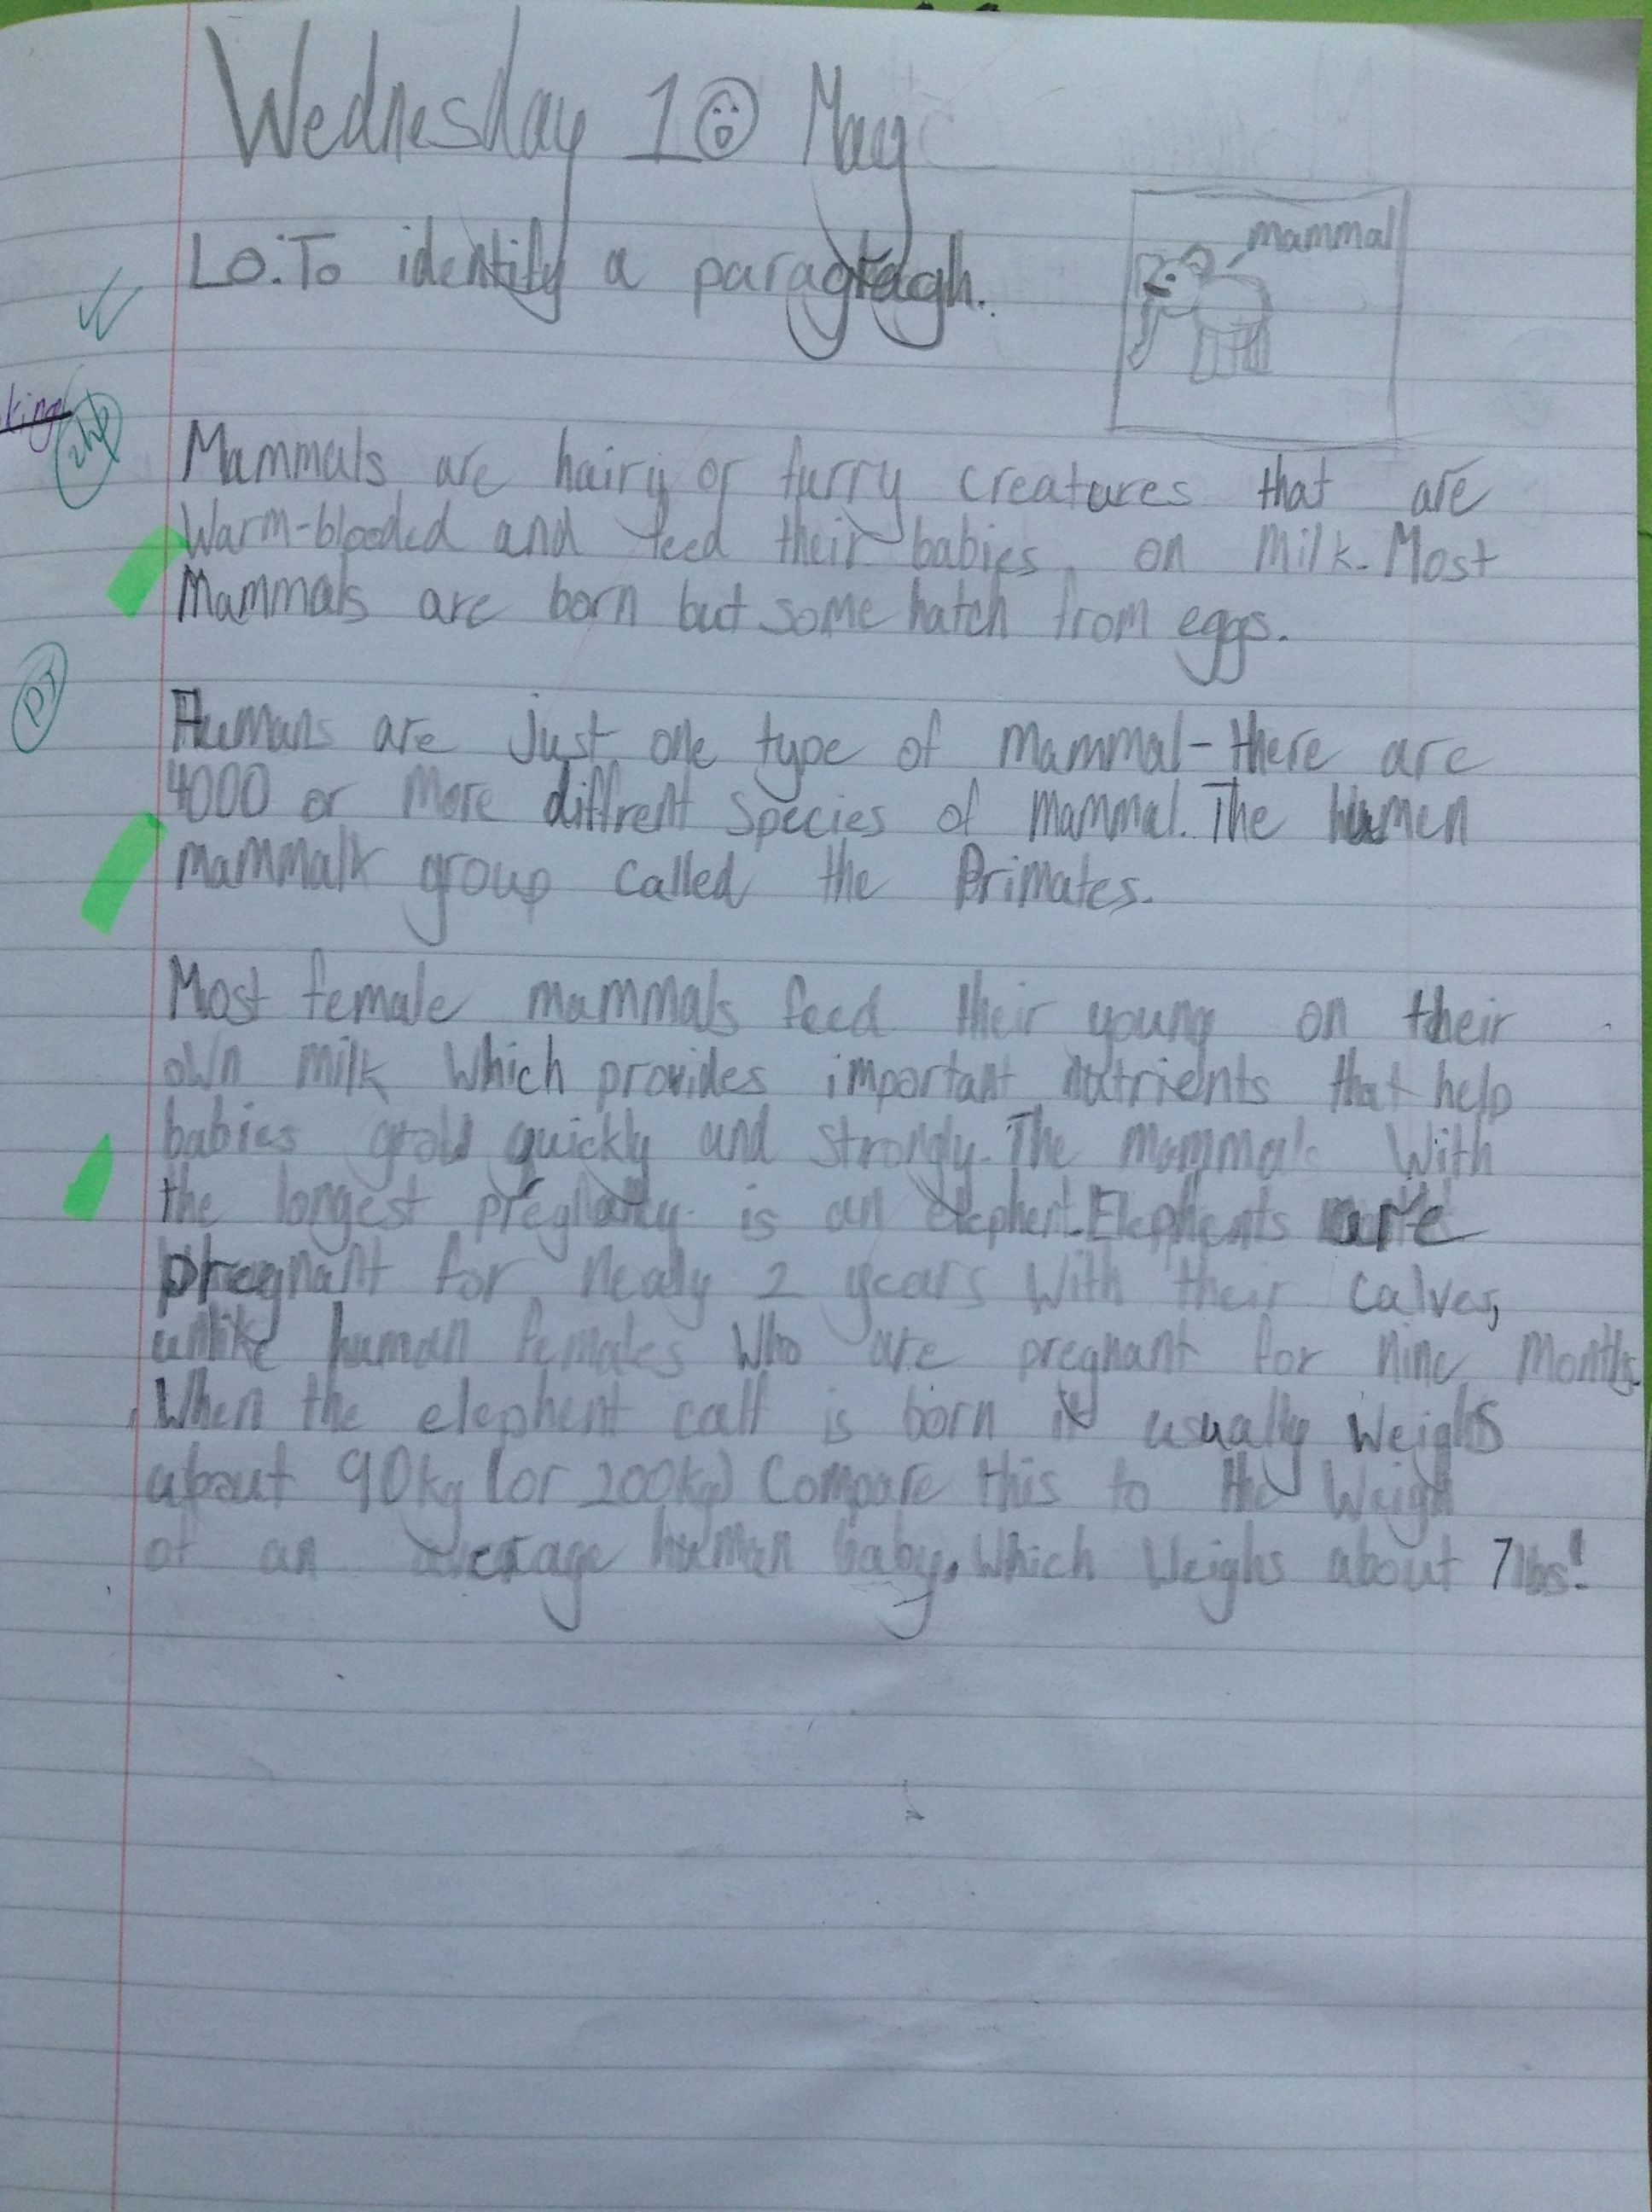 Wednesday 10 May
L.O.: To identify a paragragh.
mammal
king
Mammals are hairy or furry creatures that are
Warm-blooded and feed their babies on milk. Most
Mammals are born but some hatch from eggs.
Humans are just one type of mammal - there are
4000 or more diffrent species of mammal. The humen
mammalk group called the Primates.
Most female mammals feed their young on their
own milk which provides important nutrients that help
babies grow quickly and strongly. The mammals with
the longest pregnancy is an elephent. Elephents are
pregnant for nealy 2 years with their calves,
unlike human females who are pregnant for nine months.
When the elephent calf is born it usually weighs
about 90kg (or 200kg) Compare this to the weigh
of an average human baby, which weighs about 7lbs!